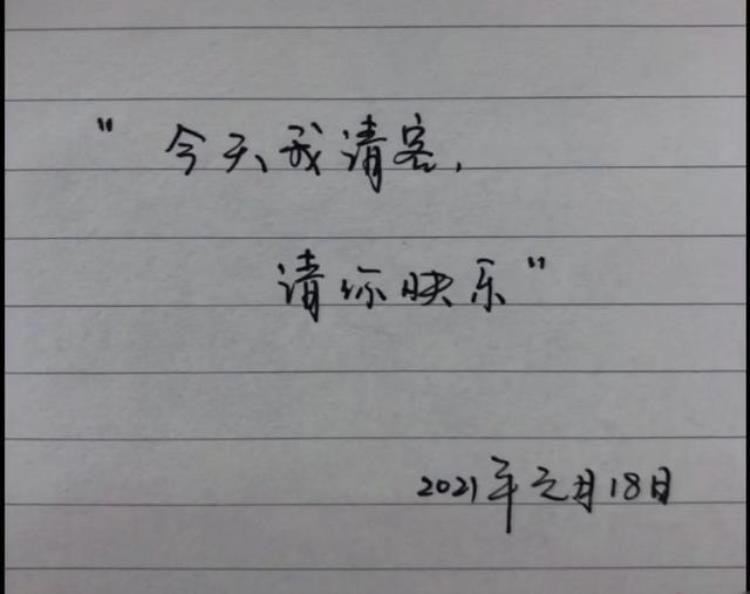 "今天我请客,
请你快乐"
2021年元月18日